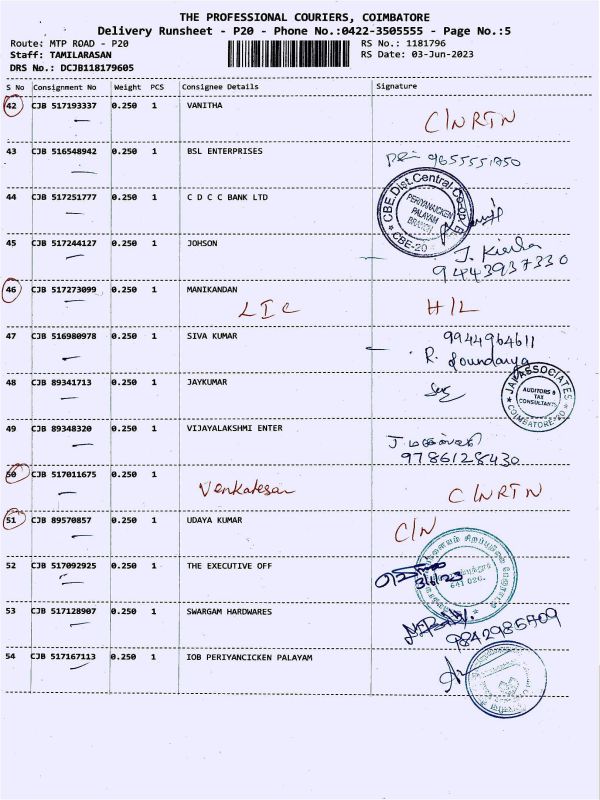 THE PROFESSIONAL COURIERS, COIMBATORE
Delivery Runsheet - P20 - Phone No.:0422-3505555 - Page No.:5
Route: MTP ROAD - P20 RS No.: 1181796
Staff: TAMILARASAN RS Date: 03-Jun-2023
DRS No.: DCJB118179605
S No Consignment No Weight PCS Consignee Details Signature
42 CJB 517193337 0.250 1 VANITHA
C/N RTN
43 CJB 516548942 0.250 1 BSL ENTERPRISES
9655551750
44 CJB 517251777 0.250 1 C D C C BANK LTD
CBE.Dist.Central Co-op. B
PERIYANAICKEN
PALAYAM
BRANCH
CBE-20
45 CJB 517244127 0.250 1 JOHSON
9443937330
46 CJB 517273099 0.250 1 MANIKANDAN
LIC H/L
47 CJB 516980978 0.250 1 SIVA KUMAR
9944964611
R. Soundarya
48 CJB 89341713 0.250 1 JAYKUMAR
ASSOCIATES
AUDITORS &
TAX
CONSULTANTS
COIMBATORE-20
49 CJB 89348320 0.250 1 VIJAYALAKSHMI ENTER
9786128430
50 CJB 517011675 0.250 1
Venkatesan C/N RTN
51 CJB 89570857 0.250 1 UDAYA KUMAR
C/N
52 CJB 517092925 0.250 1 THE EXECUTIVE OFF
3/6/23
641 020.
53 CJB 517128907 0.250 1 SWARGAM HARDWARES
9842985709
54 CJB 517167113 0.250 1 IOB PERIYANCICKEN PALAYAM